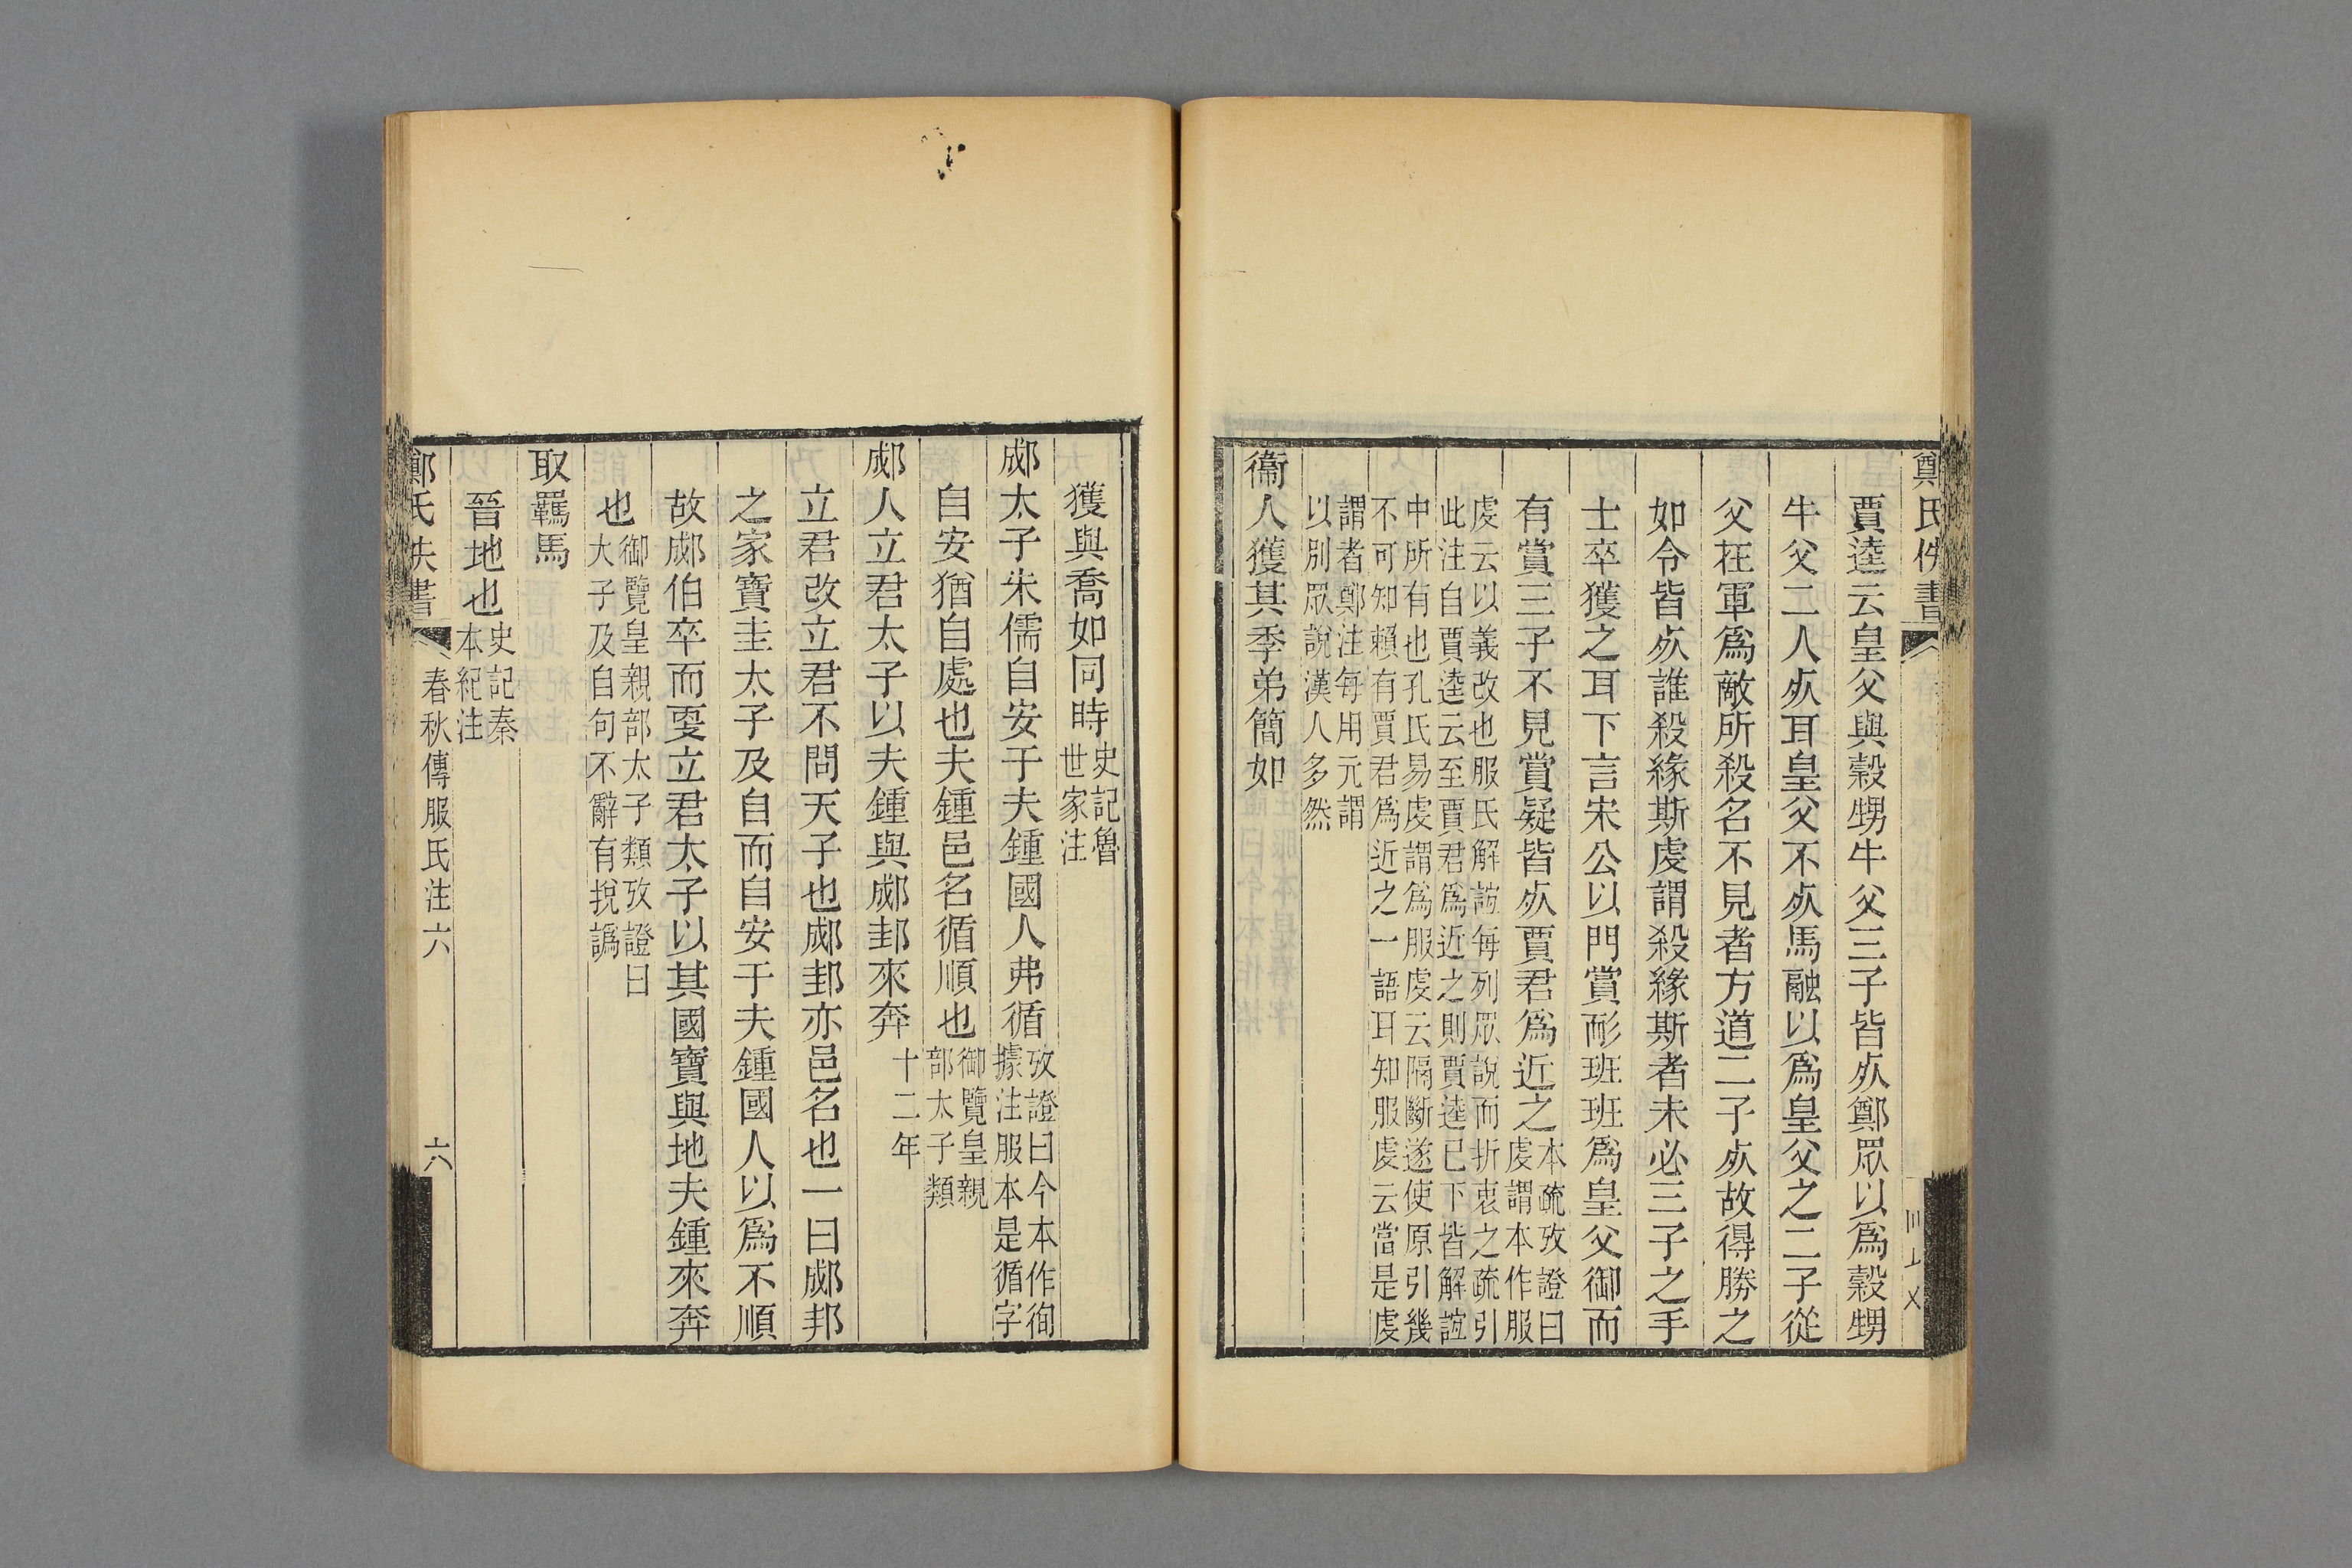 鄭氏佚書
賈逵云皇父與穀甥牛父三子皆㱙鄭眾以爲穀甥
牛父二人㱙耳皇父不㱙馬融以爲皇父之二子從
父在軍爲敵所殺名不見者方道二子㱙故得勝之
如令皆㱙誰殺緣斯虔謂殺緣斯者未必三子之手
士卒獲之耳下言宋公以門賞耏班班爲皇父御而
有賞三子不見賞疑皆㱙賈君爲近之本疏攷證曰
虔謂本作服
虔云以義改也服氏解誼每列眾說而折衷之疏引
此注自賈逵云至賈君爲近之則賈逵已下皆解誼
中所有也孔氏易虔謂爲服虔云隔斷遂使原引幾
不可知賴有賈君爲近之一語耳知服虔云當是虔
謂者鄭注每用元謂
以別眾說漢人多然
衞人獲其季弟簡如
獲與喬如同時史記魯
世家注
郕太子朱儒自安于夫鍾國人弗循攷證曰今本作徇
據注服本是循字
自安猶自處也夫鍾邑名循順也御覽皇親
部太子類
郕人立君太子以夫鍾與郕邽來奔十二年
立君改立君不問天子也郕邽亦邑名也一曰郕邦
之家寶圭太子及自而自安于夫鍾國人以爲不順
故郕伯卒而㪅立君太子以其國寶與地夫鍾來奔
也御覽皇親部太子類攷證曰
大子及自句不辭有挩譌
取羈馬
晉地也史記秦
本紀注
鄭氏佚書
春秋傳服氏注六
六